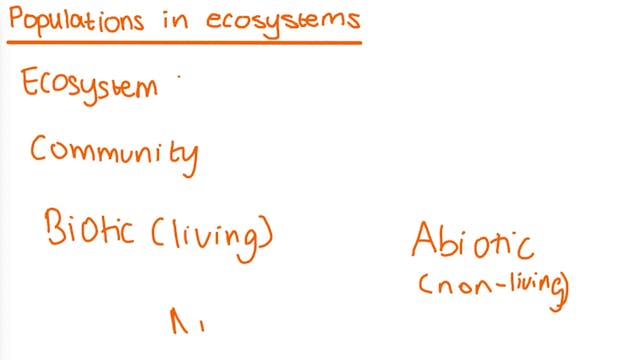 Populations in ecosystems
Ecosystem
Community
Biotic (living)
Abiotic
(non-living)